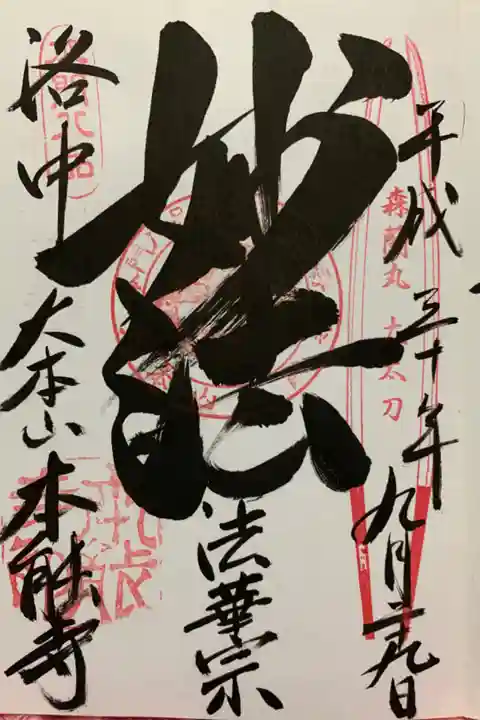 平成三十年九月二十九日
森蘭丸 大太刀
妙法
法華宗
洛中
大本山 本能寺